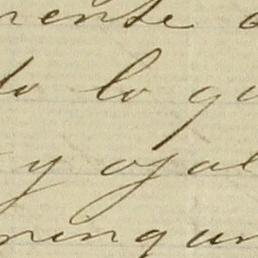 mente
do lo qu
y ojal
ningun